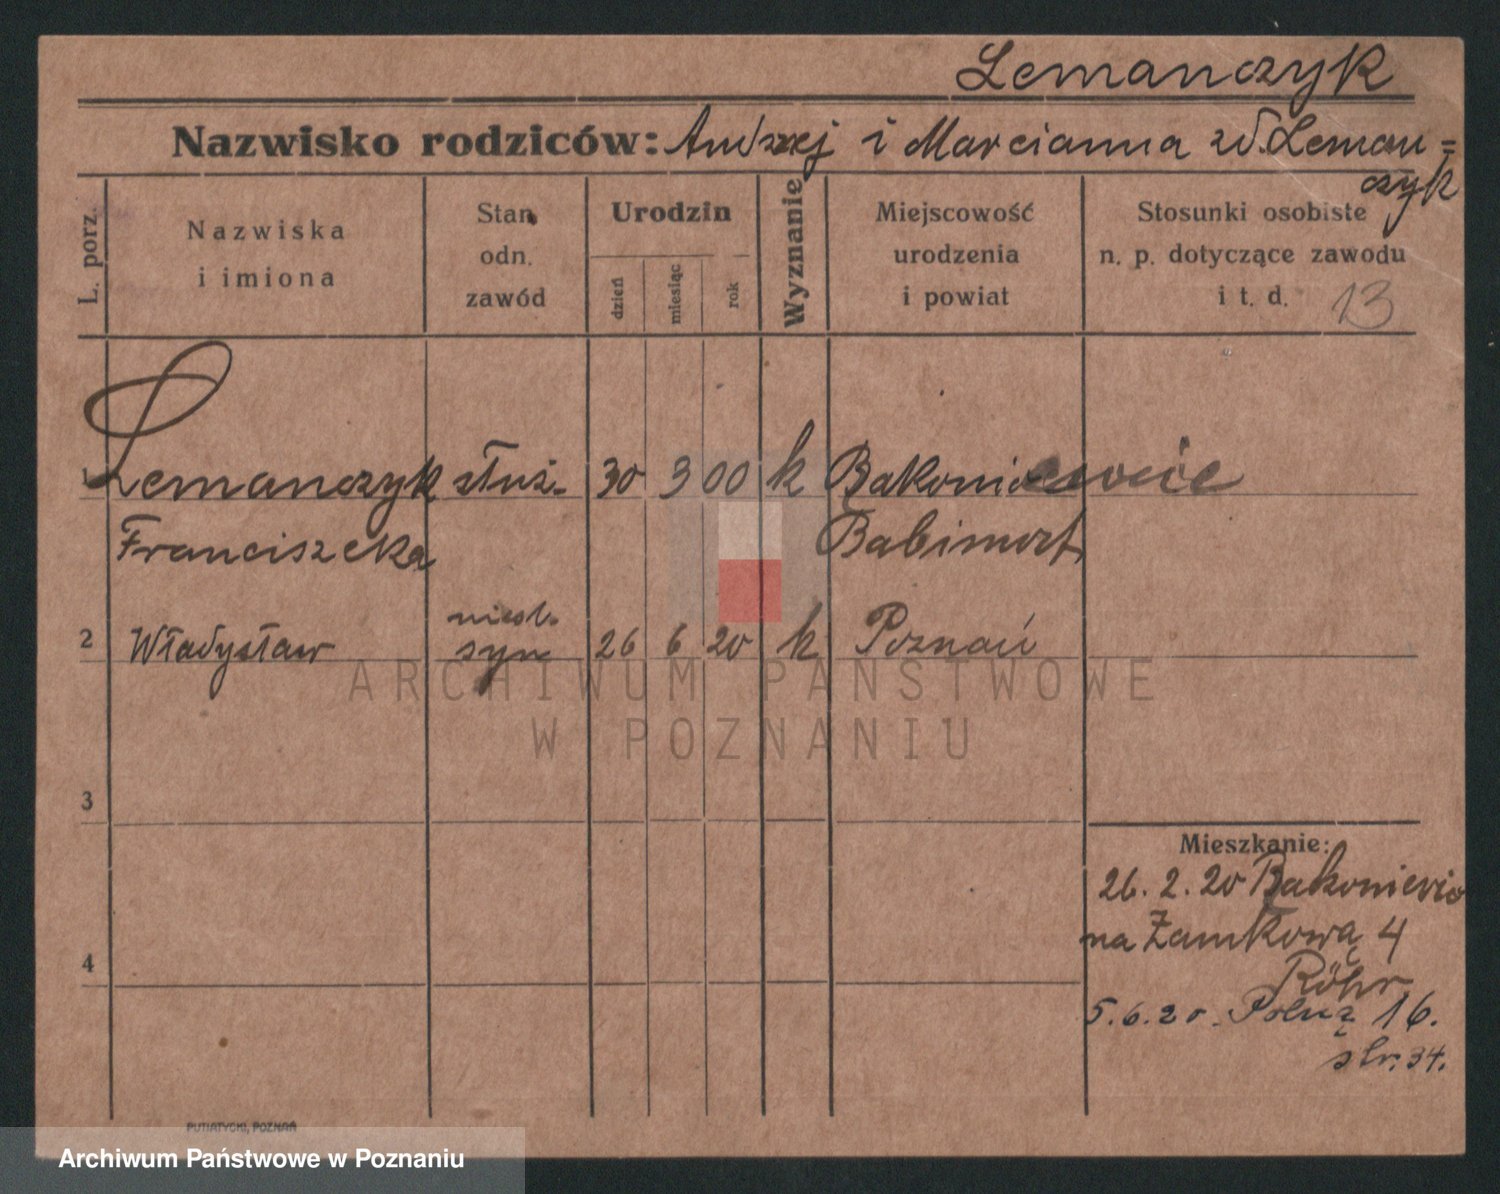 Lemanczyk
Nazwisko rodziców: Andrzej i Marcianna zd. Leman=
czyk
L. porz.
Nazwiska
i imiona
Stan
odn.
zawód
Urodzin
dzień
miesiąc
rok
Wyznanie
Miejscowość
urodzenia
i powiat
Stosunki osobiste
n. p. dotyczące zawodu
i t. d.
13
1 Lemanczyk służ. 30 3 00 k Bakoniewie
Franciszeka Babimost
2 Władysław nieśl. syn 26 6 20 k Poznań
3
4
Mieszkanie:
26. 2. 20 Bakoniewic
na Zamkową 4
Röhr
5. 6. 20. Polną 16.
str. 34.
PUTIATYCKI, POZNAŃ
ARCHIWUM PAŃSTWOWE
W POZNANIU
Archiwum Państwowe w Poznaniu